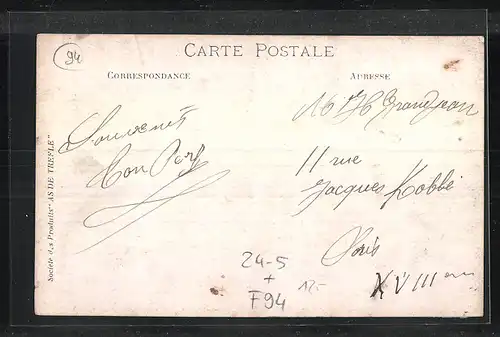 94
CARTE POSTALE
CORRESPONDANCE
ADRESSE
Souvenir
M
Grandjean
11 rue
Jacques Kobbé
Paris
XVIII
24-5
+
F94
125-
Société des Produits "AS DE TREFLE"